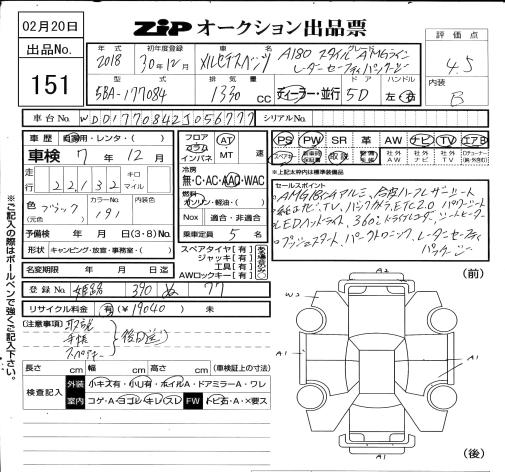 02月20日
出品No.
151
ZIP オークション出品票
評価点
4.5
内装
B
年式
2018
初年度登録
30年12月
車名
メルセデスベンツ
グレード
A180 スタイル AMGライン
レーダーセーフティパッケージ
型式
5BA-177084
排気量
1330 cc
ディーラー・並行
ドア
5D
ハンドル
左・右
車台No.
WDD1770842J056777
シリアルNo.
車歴 自家用・レンタ・( )
車検 7年12月
走行
22,132
キロ
マイル
色
ブラック
(元色)
カラーNo.
191
内装色
予備検 年 月 日(3・8)No.
形状 キャンピング・放宣・事務室・( )
名変期限 年 月 日迄
フロア
コラム
インパネ
AT
MT
速
冷房
無・C・AC・AAC・WAC
燃料
ガソリン・軽油・( )
Nox 適合・非適合
乗車定員 5名
スペアタイヤ[有]
ジャッキ[有]
工具[有]
AWロックキー[有]
PS PW SR 革 AW ナビ TV エアB
※上記太枠内は標準装備
セールスポイント
AMG18インチアルミ、合皮ハーフレザーシート
純正ナビ、TV、バックカメラ、ETC2.0 パワーシート
LEDヘッドライト、360° ドライブレコーダー シートヒーター
プッシュスタート、パークトロニック、レーダーセーフティ
パッケージ
登録No. 姫路 390 ぬ 77
リサイクル料金 有(¥19040) 未
(注意事項)
取説
手帳
スペアキー
後日送
長さ cm 幅 cm 高さ cm (車検証上の寸法)
検査記入
外装 小キズ有・小凹有・ホイルA・ドアミラーA・ワレ
室内 コゲ・A・ヨゴレ・キレ・スレ FW トビ石・A・×要ス
※ご記入の際はボールペンで強くご記入下さい。
(前)
A2
W2
A1
A1
(後)